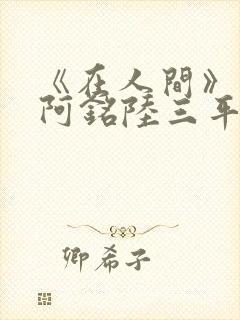 《在人間》
阿銘陸三平
卿希子